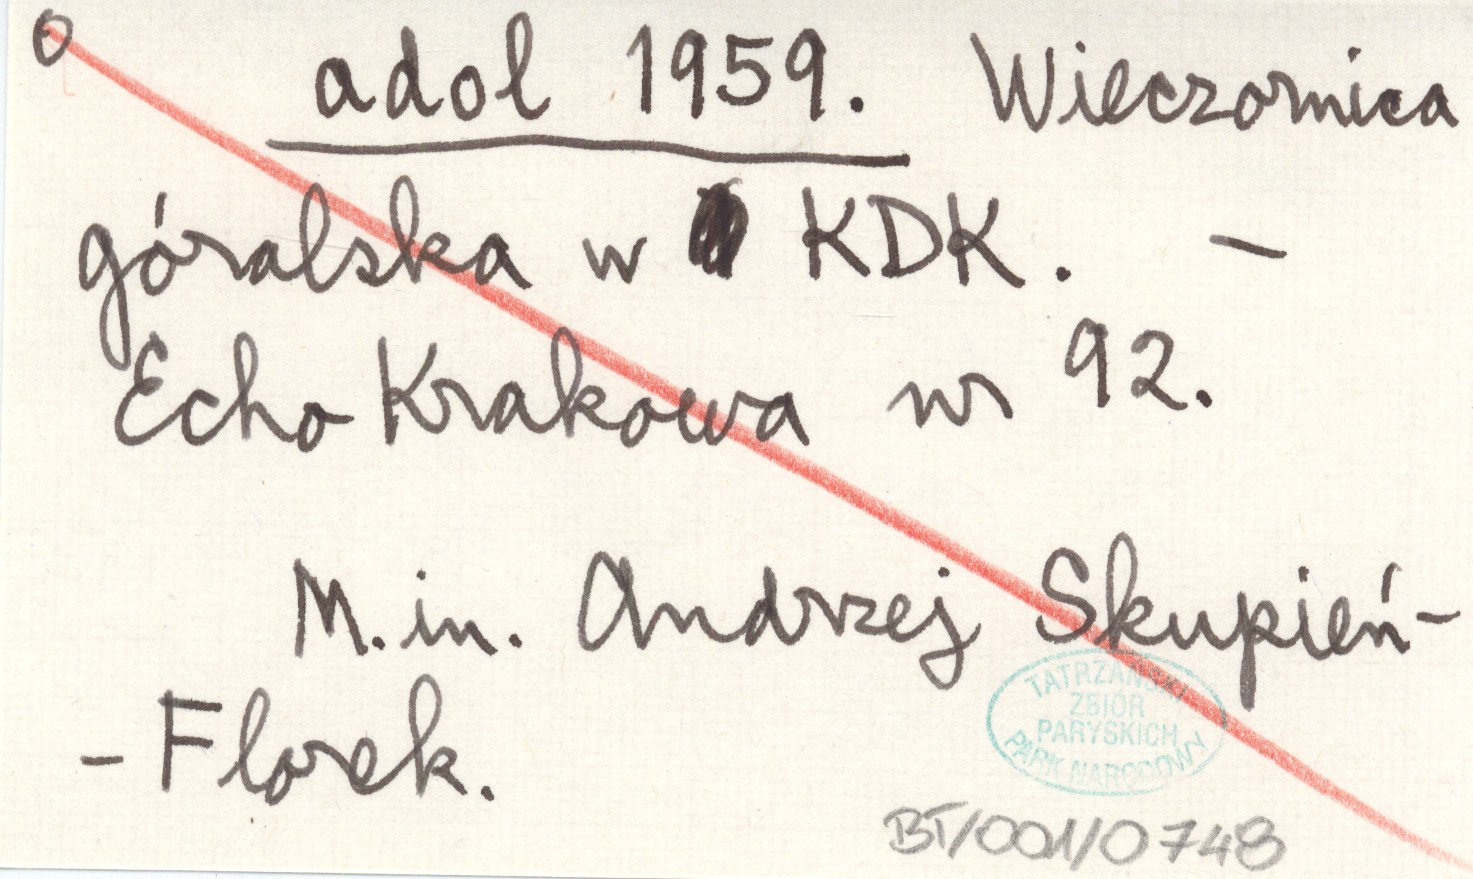 adol 1959. Wieczornica
góralska w KDK. –
Echo Krakowa nr 92.
M. in. Andrzej Skupień-
- Florek.
TATRZAŃSKI
ZBIÓR
PARYSKICH
PARK NARODOWY
BT/001/0748